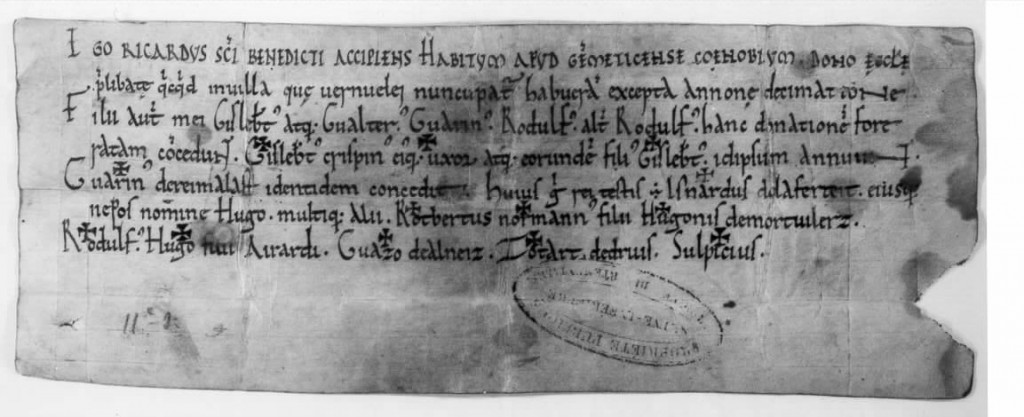 EGO RICARDVS SC̄I BENEDICTI ACCIPIENS HABITVM APVD GEMETICENSE COENOBIVM. DONO ĘCCLĘ
q̇cq̇d in uilla quę uernuclei nuncupat̄ habuerā excepta annonę decimatione
Filii aūt mei Gislebt᷒ atq; Gualter᷒ Guarin᷒ Rodulf᷒ alt̄ Rodulf᷒ hanc donationē fore
ratam cōcedunt. Gislebt᷒ crispin᷒ eiq; uxor atq; eorundē filī Gislebt᷒ idipsum annuunt.
Guarin᷒ identidem concedit. Huius testis Isnardus eiusq;
nepos nomine Hugo. multiq; alii. Rotbertus normann᷒ filii Hugonis
Rodulf᷒ Hugo filii Airardi. Guazo Dotart. Sulpicius.